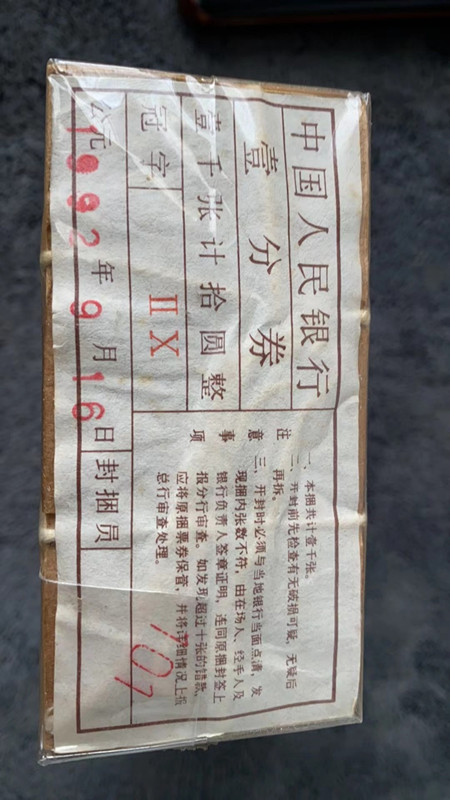 中国人民银行
壹分券
壹千张计拾圆整
冠字 II X
公元1992年9月16日 封捆员
107
注意事项
一、本捆共计壹千张。
二、开封前先检查有无破损可疑,无疑后
再拆。
三、开封时必须与当地银行当面点清,发
现捆内张数不符,由在场人、经手人及
银行负责人签章证明,连同原捆封签上
报分行审查。如发现超过十张的错款,
应将原捆票券保管,并将详细情况上报
总行审查处理。